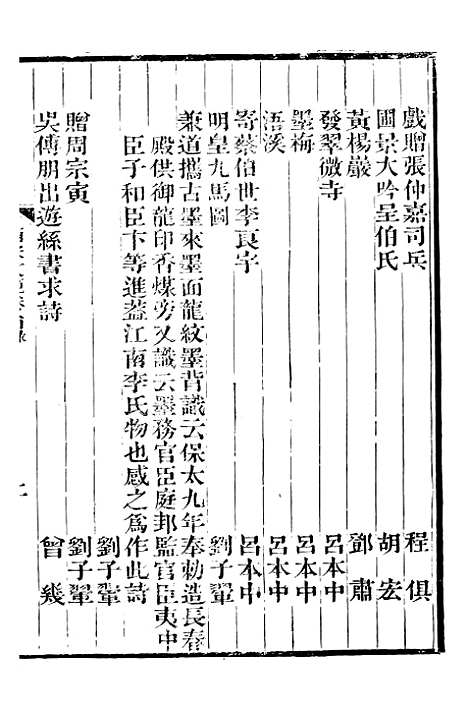 戲贈張仲嘉司兵　程俱
圃景大吟呈伯氏　胡宏
黃楊巖　鄧肅
發翠微寺　呂本中
墨梅　呂本中
浯溪　呂本中
寄蔡伯世李良宇　呂本中
明皇九馬圖　劉子翬
兼道攜古墨來墨面龍紋墨背識云保太九年奉勅造長春
殿供御龍印香煤旁又識云墨務官臣庭邽監官臣夷中
臣子和臣卞等進葢江南李氏物也感之爲作此詩
劉子翬
贈周宗寅　劉子翬
吳傅朋出遊絲書求詩　曾幾